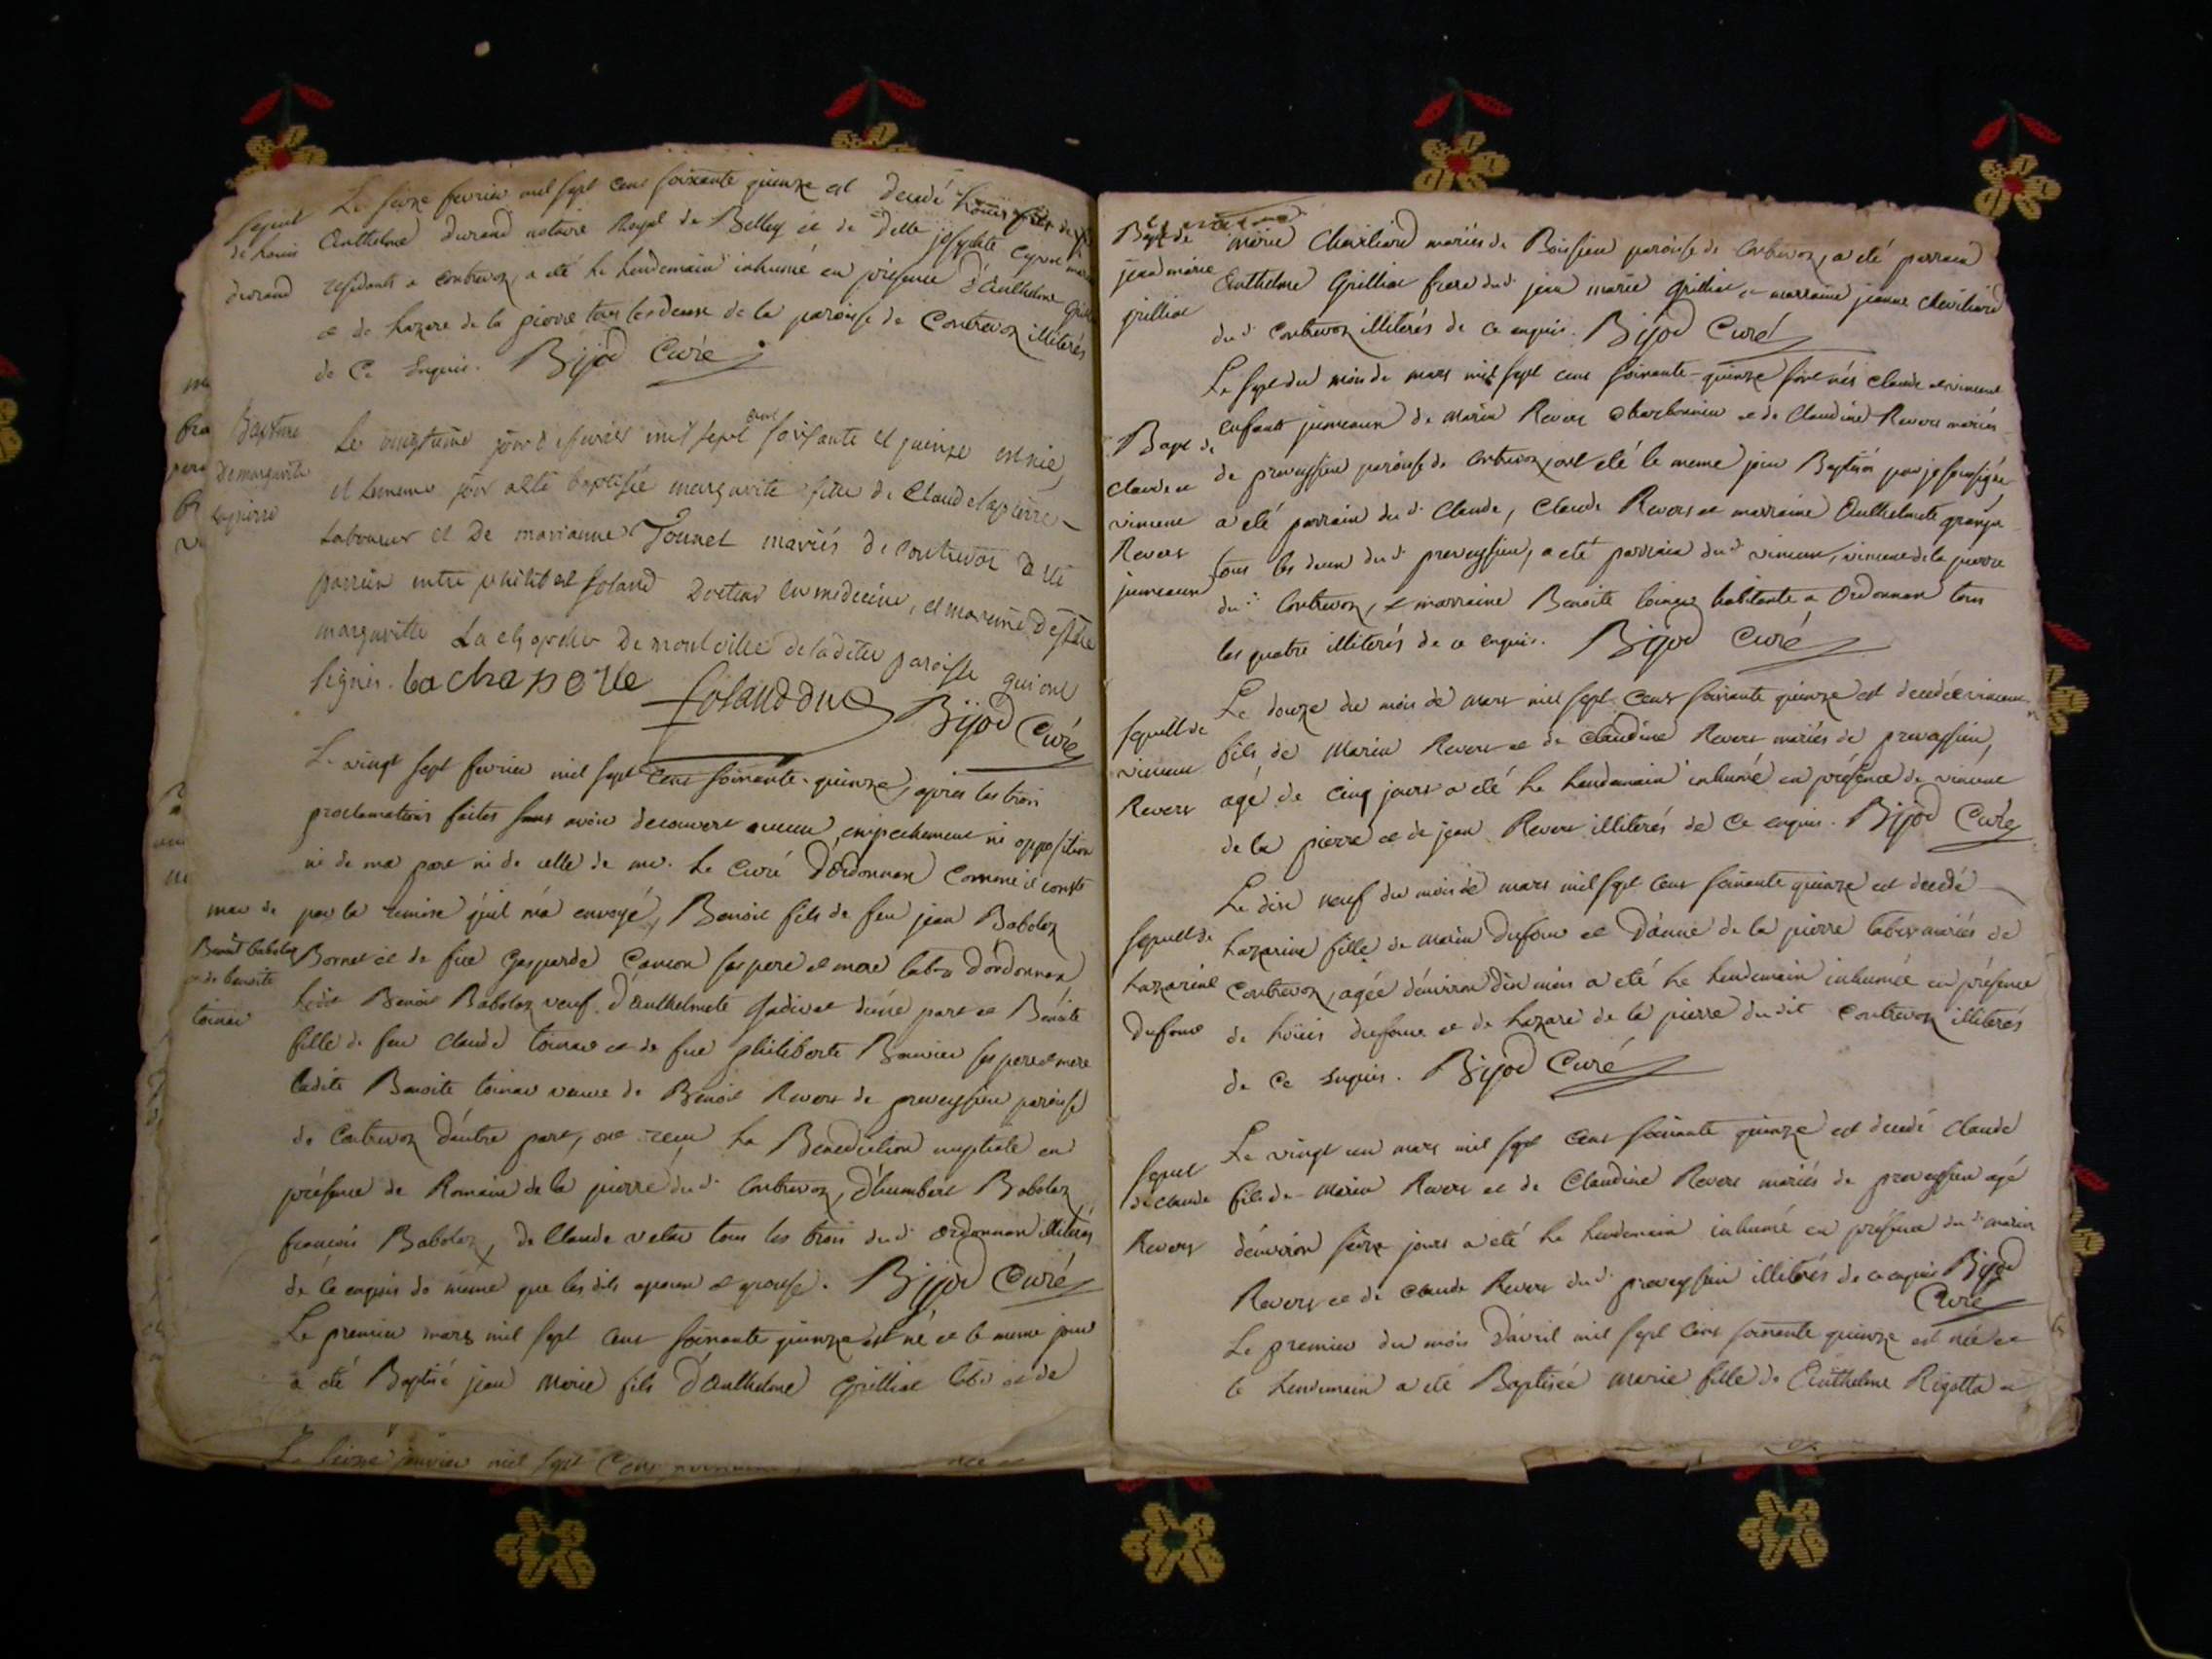 Le seize fevrier mil sept cens soixante quinze est decedé Loüis fils de
Sepul
de Louis
durand
Anthelme durand notaire Royal de Belley et de delle josephete Cyvoct
residants a contrevoz, a eté le lendemain inhumé en présence d'Anthelme
et de Lazare de la pierre tous les deux de la paroisse de Contrevoz illiterés
de Ce Enquis. Bijod Curé
Bapteme
de marguerite
lapierre
Le vingtieme jour de fevrier mil sept cent soixante et quinze est née
et le meme jour a eté baptisée marguerite fille de Claude lapierre
Laboureur et De marianne Jounet mariés de contrevoz a eté
parrein Docteur en medecine, et mareine
margueritte La chapelle De de ladite paroisse qui ont
signés. la chapelle Bijod Curé
Le vingt sept fevrier mil sept cens soixante-quinze, après les trois
proclamations faites sans avoir decouvert aucun empechement ni opposition
ni de ma part ni de celle de mr. le Curé d'Ordonnax Comme il conste
mar de
Benoit babolaz
et de benoite
toinav
par la remise qu'il m'a envoyé, Benoit fils de feu jean Babolaz
Bornet et de feüe Gasparde ses pere et mere d'ordonnax
ledit Benoit Babolaz veuf d'Anthelmete d'une part et Benoite
fille de feu Claude et de feue philiberte Bouvier ses pere et mere
ladite Benoite veuve de Benoit Revers de preveyssieu paroisse
de Contrevoz d'autre part, ont reçu La Benediction nuptiale en
présence de Romain de la pierre dud. Contrevoz, d'humbert Babolaz
francois Babolaz, de Claude tous les trois dud. Ordonnax illiterés
de ce enquis de meme que les dits epoux et epouse. Bijod Curé
Le premier mars mil sept cens soixante quinze est né et le meme jour
a eté Baptisé jean Marie fils d'Anthelme Grilliat labr et de
Le seize janvier mil sept Cens
Bapt de
jean marie
grilliat
Marie Chavillard mariés de Boissieu paroisse de Contrevoz, a eté parrain
Anthelme Grilliat frere dud. jean marie grilliat et marraine jeanne Chavillard
dud. Contrevoz illiterés de ce enquis. Bijod Curé
Le sept du mois de mars mil sept cens soixante-quinze sont nés claude et vincent
Bapt de
claude et
vincent
Revers
jumeaux
enfants jumeaux de Marin Revers charbonnier et de Claudine Revers mariés
de preveyssieu paroisse de Contrevoz, ont eté le meme jour Baptisés par je soussigné
a eté parrain dud. Claude, Claude Revers et marraine Anthelmete
tous les deux dud. preveyssieu, a eté parrain dud. vincent, vincent de la pierre
dud. Contrevoz, et marraine Benoite habitante a Ordonnax tous
les quatre illiterés de ce enquis. Bijod Curé
Le douze du mois de mars mil sept cens soixante quinze est decedé vincent
Sepult de
vincent
Revers
fils de Marin Revers et de Claudine Revers mariés de preveyssieu,
agé de cinq jours a eté le lendemain inhumé en présence de vincent
de la pierre et de jean Revers illiterés de Ce enquis. Bijod Curé
Le dix neuf du mois de mars mil sept cens soixante quinze est decedé
Sepult de
Lazarine
Dufour
Lazarine fille de Marin dufour et d'anne de la pierre labrs mariés de
Contrevoz, agée d'environ dix mois a eté le lendemain inhumée en présence
de Loüis dufour et de Lazare de la pierre dudit Contrevoz illiterés
de Ce Enquis. Bijod Curé
Le vingt un mars mil sept cens soixante quinze est decedé claude
Sepul
de claude
Revers
fils de Marin Revers et de Claudine Revers mariés de preveyssieu agé
d'environ seize jours a eté le lendemain inhumé en présence dud. Marin
Revers et de Claude Revers dud. preveyssieu illiterés de ce enquis Bijod
Curé
Le premier du mois d'avril mil sept cens soixante quinze est née et
le lendemain a eté Baptisée Marie fille de Anthelme Rigotta et